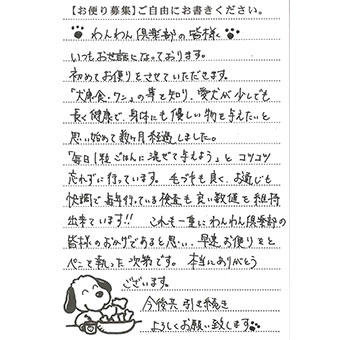 【お便り募集】ご自由にお書きください。
わんわん倶楽部の皆様へ
いつもお世話になっております。
初めてお便りをさせていただきます。
「犬康食・ワン」の事を知り、愛犬が少しでも
長く健康で、身体にも優しい物を与えたいと
思い始めて数ヶ月経過しました。
「毎日1粒ごはんに混ぜて与えよう」とコツコツ
忘れずに行っています。毛づやも良く、お通じも
快調で毎年行っている検査も良い数値を維持
出来ています!! これも一重にわんわん倶楽部の
皆様のおかげであると思い、早速お便りをと
ペンを執った次第です。本当にありがとう
ございます。
今後共引き続き
よろしくお願い致します